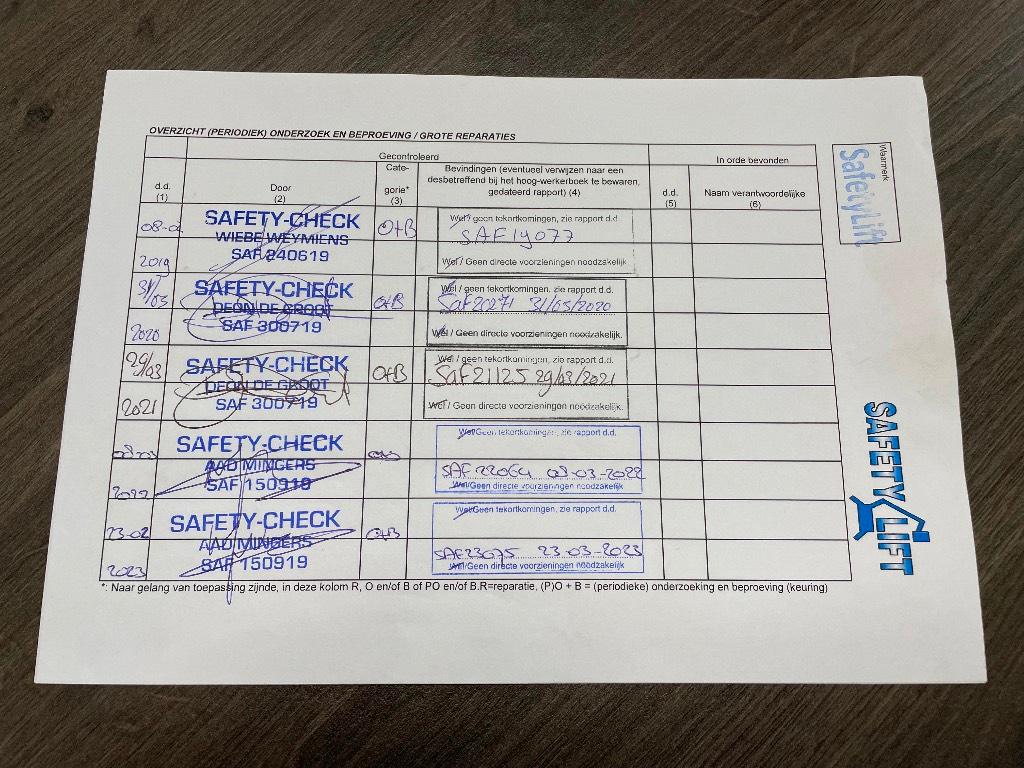 OVERZICHT (PERIODIEK) ONDERZOEK EN BEPROEVING / GROTE REPARATIES
Gecontroleerd
In orde bevonden
d.d.
(1)
Door
(2)
Cate-
gorie*
(3)
Bevindingen (eventueel verwijzen naar een
desbetreffend bij het hoog-werkerboek te bewaren,
gedateerd rapport) (4)
d.d.
(5)
Naam verantwoordelijke
(6)
Waarmerk
SafetyLift
2019
SAFETY-CHECK
WIEBE WEYMIENS
SAF 240619
O+B
Wel / geen tekortkomingen, zie rapport d.d.
SAF19077
Wel / Geen directe voorzieningen noodzakelijk
31/
03
2020
SAFETY-CHECK
DEON DE GROOT
SAF 300719
O+B
Wel / geen tekortkomingen, zie rapport d.d.
31/03/2020
Wel / Geen directe voorzieningen noodzakelijk.
29/03
2021
SAFETY-CHECK
DEON DE GROOT
SAF 300719
O+B
Wel / geen tekortkomingen, zie rapport d.d.
SaF21125 29/03/2021
Wel / Geen directe voorzieningen noodzakelijk.
2022
SAFETY-CHECK
AAD MINGERS
SAF 150919
Wel/Geen tekortkomingen, zie rapport d.d.
SAF22064 08-03-2022
Wel/Geen directe voorzieningen noodzakelijk
23-02
2023
SAFETY-CHECK
AAD MINGERS
SAF 150919
O+B
Wel/Geen tekortkomingen, zie rapport d.d.
SAF23075 23-03-2023
Wel/Geen directe voorzieningen noodzakelijk
*: Naar gelang van toepassing zijnde, in deze kolom R, O en/of B of PO en/of B.R=reparatie, (P)O + B = (periodieke) onderzoeking en beproeving (keuring)
SAFETY LIFT